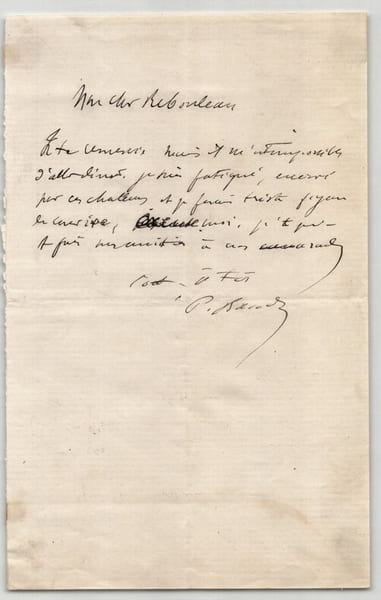 Mon cher Rebouleau
Je te remercie mais il m'est impossible
d'aller dîner, je suis fatigué, énervé
par ces chaleurs et je ferais triste figure
excuse moi, je t'en
et fais mes amitiés à nos camarades
tout à toi
P.